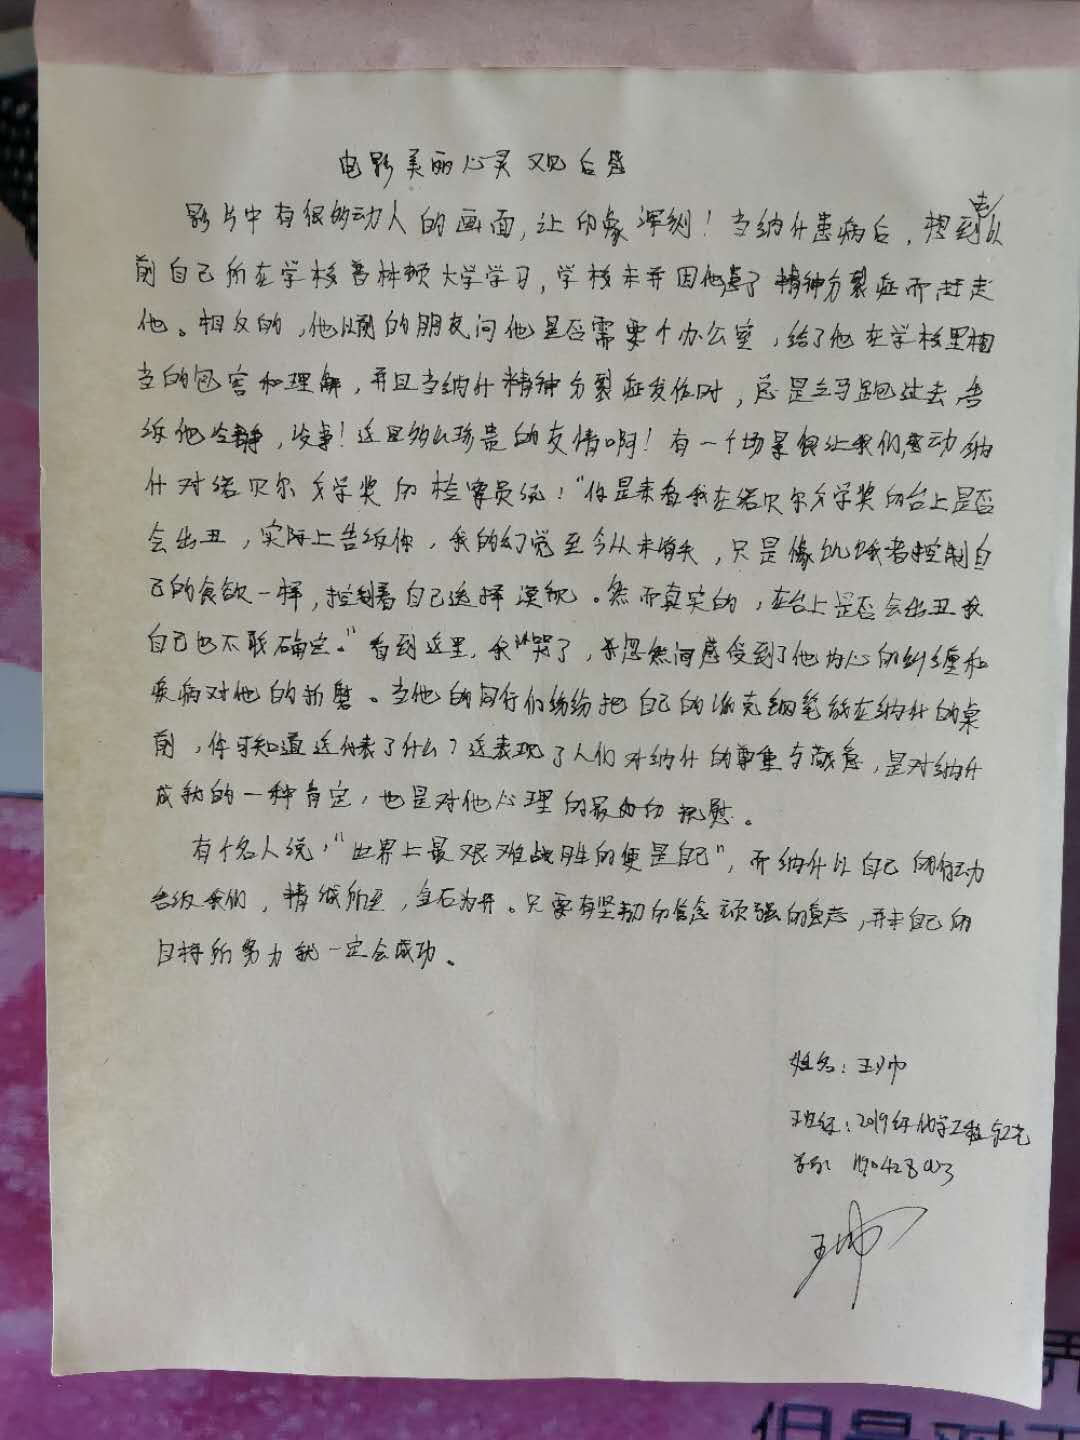 电影美丽心灵观后感
影片中有很的动人的画面,让印象深刻!当纳什患病后,想到去从
前自己所在学校普林顿大学学习,学校未并因他患了精神分裂症而赶走
他。相反的,他以前的朋友问他是否需要个办公室,给了他在学校里相
当的包容和理解,并且当纳什精神分裂症发作时,总是立马跑过去,告
诉他冷静,没事!这是多么珍贵的友情啊!有一个场景很让我们感动,纳
什对诺贝尔 学奖的检察员说:"你是来看我在诺贝尔 学奖的台上是否
会出丑,实际上告诉你,我的幻觉至今从未消失,只是像饥饿者控制自
己的食欲一样,控制着自己选择漠视。然而真实的,在台上是否会出丑我
自己也不敢确定。"看到这里,我哭了,我忽然间感受到了他内心的纠缠和
疾病对他的折磨。当他的同行们纷纷把自己的派克钢笔放在纳什的桌
前,你可知道这代表了什么?这表现了人们对纳什的尊重与敬意,是对纳什
成就的一种肯定,也是对他心理的最 的抚慰。
有个名人说:"世界上最艰难战胜的便是自己",而纳什以自己的行动
告诉我们,精诚所至,金石为开。只要有坚韧的信念顽强的意志,并未自己的
目标所努力就一定会成功。
姓名:王帅
班级:2019年化学工程与工艺
学号:
王帅
但是对于